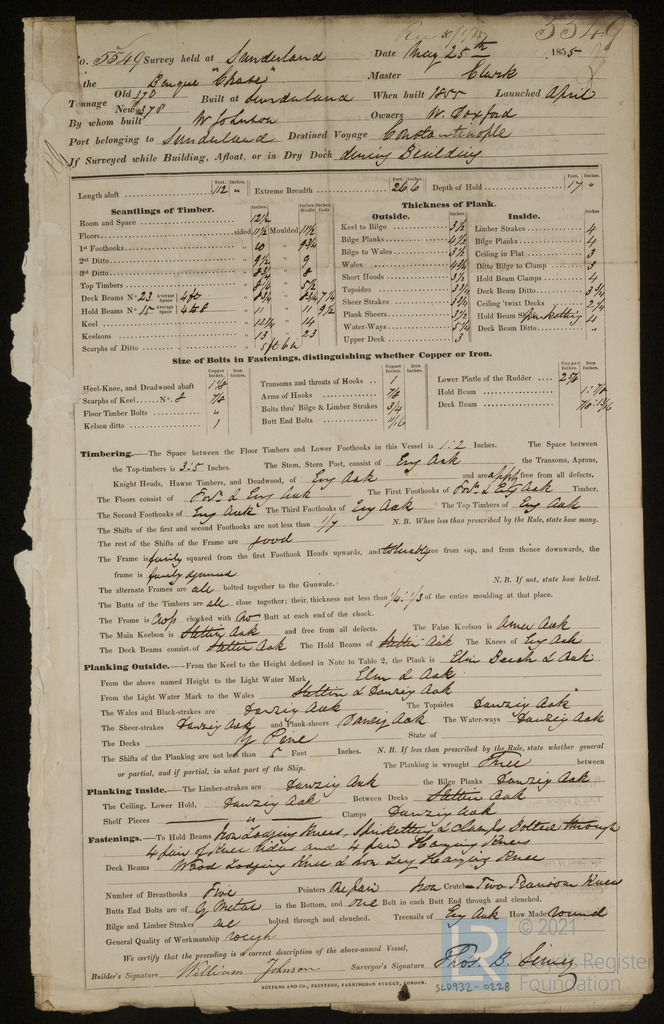 5549
No. 5549 Survey held at Sunderland Date May 25th 1855
the Barque "Chase" Master Clark
Tonnage Old 370 New 378 Built at Sunderland When built 1855 Launched April
By whom built W Johnson Owners W. Doxford
Port belonging to Sunderland Destined Voyage Constantinople
If Surveyed while Building, Afloat, or in Dry Dock during Building
Feet. Inches. Feet. Inches. Feet. Inches.
Length aloft 112 " Extreme Breadth 26 6 Depth of Hold 17 "
Scantlings of Timber. Thickness of Plank.
Outside. Inside.
Room and Space
Floors sided 11 1/2 Moulded 11 1/2
1st Foothooks 10 " 9 3/4
2nd Ditto 9 1/2 " 9
3rd Ditto 8 3/4 " 8
Top Timbers 8 1/4 " 5 1/2
Deck Beams No. 23 Average Space 4 ft 8 3/4 8 3/4 7 1/4
Hold Beams No. 15 Average Space 11 11 9 1/2
Keel 12 3/4 " 14
Keelsons 13 " 23
Scarphs of Ditto 5 ft 6 in
Keel to Bilge 3 1/2
Bilge Planks 4 1/2
Bilge to Wales 3 1/2
Wales 4 3/4
Short Hoods 3 1/2
Topsides 3 3/4
Sheer Strakes 3 3/4
Plank Sheers 3 1/2
Water-Ways 5 1/4
Upper Deck 3
Limber Strakes 4
Bilge Planks 4
Ceiling in Flat 3
Ditto Bilge to Clamp 3
Hold Beam Clamps 4
Deck Beam Ditto 3 3/4
Ceiling 'twixt Decks 2 1/4
Hold Beam Spirketting 4
Deck Beam Ditto "
Size of Bolts in Fastenings, distinguishing whether Copper or Iron.
Copper Inches. Iron Inches. Copper Inches. Iron Inches. Copper Inches. Iron Inches.
Heel-Knee, and Deadwood abaft 1 1/8
Scarphs of Keel No. 8 7/8
Floor Timber Bolts "
Kelson ditto 1
Transoms and throats of Hooks 1
Arms of Hooks 7/8
Bolts thro' Bilge & Limber Strakes 3/4
Butt End Bolts 11/16
Lower Pintle of the Rudder 2 5/8
Hold Beam 1 : 7/8
Deck Beam 7/8 : 13/16
Timbering.—The Space between the Floor Timbers and Lower Foothooks in this Vessel is 1:2 Inches. The Space between
the Top-timbers is 3:5 Inches. The Stem, Stern Post, consist of Eng Oak the Transoms, Aprons,
Knight Heads, Hawse Timbers, and Deadwood, of Eng Oak and are appy free from all defects.
The Floors consist of Forn. & Eng Oak The First Foothooks of Forn. & Eng Oak Timber.
The Second Foothooks of Eng Oak The Third Foothooks of Eng Oak The Top Timbers of Eng Oak
The Shifts of the first and second Foothooks are not less than 1/7 N.B. When less than prescribed by the Rule, state how many.
The rest of the Shifts of the Frame are good
The Frame is fairly squared from the first Foothook Heads upwards, and tolerably free from sap, and from thence downwards, the
frame is fairly squared
The alternate Frames are all bolted together to the Gunwale. N.B. If not, state how bolted.
The Butts of the Timbers are all close together; their, thickness not less than 1/4 : 1/3 of the entire moulding at that place.
The Frame is Crop chocked with Av Butt at each end of the chock.
The Main Keelson is Stettin Oak and free from all defects. The False Keelson is Amer Oak
The Deck Beams consist of Stettin Oak The Hold Beams of Stettin Oak The Knees of Eng Oak
Planking Outside.—From the Keel to the Height defined in Note to Table 2, the Plank is Elm Beech & Oak
From the above named Height to the Light Water Mark Elm & Oak
From the Light Water Mark to the Wales Stettin & Danzig Oak
The Wales and Black-strakes are Danzig Oak The Topsides Danzig Oak
The Sheer-strakes Danzig Oak and Plank-sheers Danzig Oak The Water-ways Danzig Oak
The Decks Y Pine State of
The Shifts of the Planking are not less than 5 Feet Inches. N.B. If less than prescribed by the Rule, state whether general
or partial, and if partial, in what part of the Ship. The Planking is wrought Three between
Planking Inside.—The Limber-strakes are Danzig Oak the Bilge Planks Danzig Oak
The Ceiling, Lower Hold, Danzig Oak Between Decks Stettin Oak
Shelf Pieces " Clamps Danzig Oak
Fastenings.—To Hold Beams Iron Lodging Knees, Spirketting & Clamps bolted through
4 pair of Knee Riders and 4 pair Hanging Knees
Deck Beams Wood Lodging Knee & Iron Hanging Knee
Number of Breasthooks Five Pointers One pair Iron Crutch Two Transom Knees
Butts End Bolts are of Y Metal in the Bottom, and one Bolt in each Butt End through and clenched.
Bilge and Limber Strakes are bolted through and clenched. Treenails of Eng Oak How Made round
General Quality of Workmanship rough
We certify that the preceding is a correct description of the above-named Vessel,
Builder's Signature William Johnson Surveyor's Signature Thos. B. Simey
SEYFANG AND CO., PRINTERS, FARRINGDON STREET, LONDON.
SLD932-0228
© 2021
Lloyd's Register
Foundation